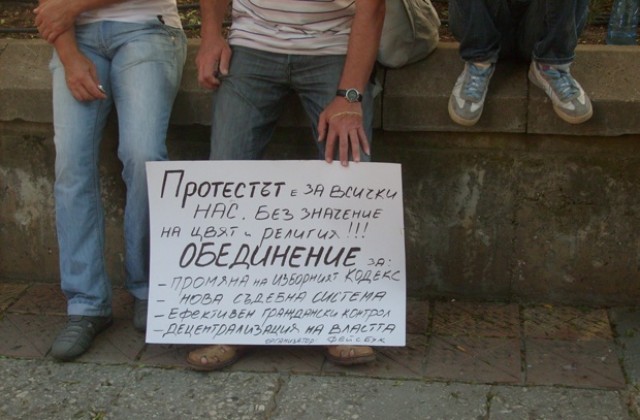 ПРОТЕСТЪТ е ЗА ВСИЧКИ
НАС. БЕЗ ЗНАЧЕНИЕ
НА ЦВЯТ и РЕЛИГИЯ!!!
ОБЕДИНЕНИЕ ЗА:
- ПРОМЯНА НА ИЗБОРНИЯТ КОДЕКС
- НОВА СЪДЕБНА СИСТЕМА
- ЕФЕКТИВЕН ГРАЖДАНСКИ КОНТРОЛ
- ДЕЦЕНТРАЛИЗАЦИЯ НА ВЛАСТТА
ОРГАНИЗАТОР ФЕЙСБУК